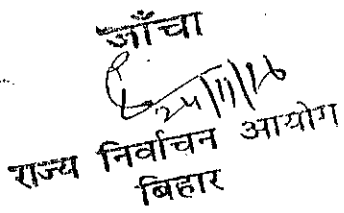 जाँचा
24/11/16
राज्य निर्वाचन आयोग
बिहार